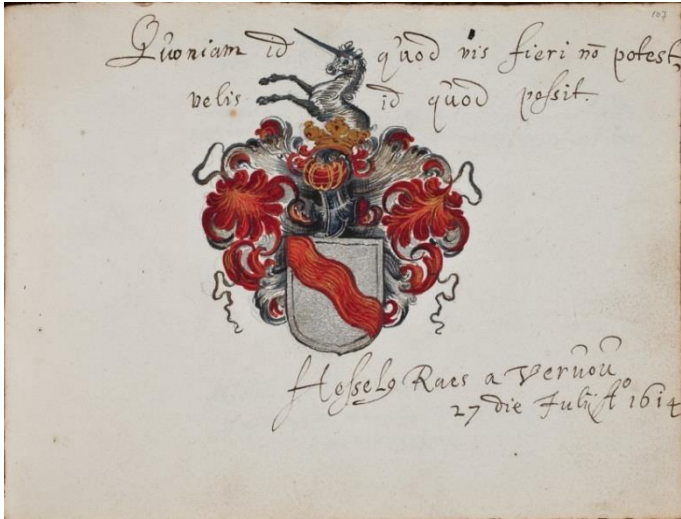 107
Quoniam id quod vis fieri nō potest,
velis id quod possit.
Hesselo Raes a Vervoũ
27 die Julij Aº 1614